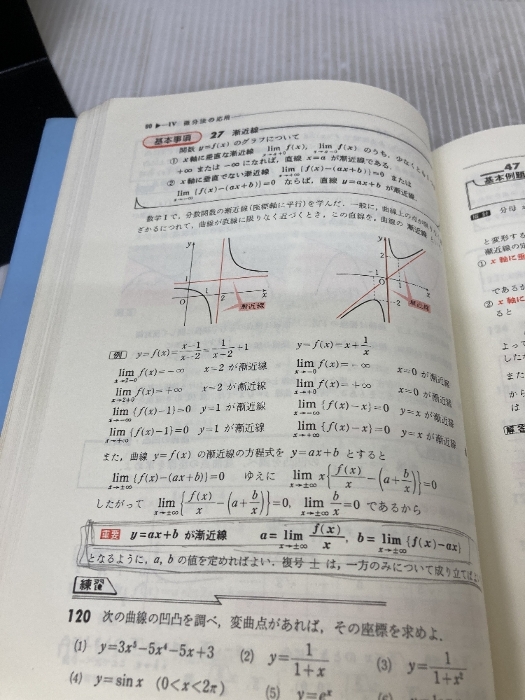 例 ▶—IV 微分法の応用
基本事項 27 漸近線
関数 y=f(x) のグラフについて
① x軸に垂直な漸近線 lim f(x), lim f(x) のうち, 少なくとも
+∞ または −∞ になれば, 直線 x=a が漸近線である.
② x軸に垂直でない漸近線 lim {f(x)−(ax+b)}=0 または
lim {f(x)−(ax+b)}=0 ならば, 直線 y=ax+b が漸近線.
数学Ⅰで, 分数関数の漸近線(座標軸に平行)を学んだ. 一般に, 曲線上の点が
ざかるにつれて, 曲線が直線に限りなく近づくとき, この直線を, 曲線の 漸近線
y 1 O 1 2 x 漸近線
y 2 1 -2 x 漸近線
〔例〕 y=f(x)=(x−1)/(x−2)=1/(x−2)+1 y=f(x)=x+1/x
lim[x→2−0] f(x)=−∞ x=2 が漸近線 lim[x→−0] f(x)=−∞ x=0 が漸近線
lim[x→2+0] f(x)=+∞ x=2 が漸近線 lim[x→+0] f(x)=+∞ x=0 が漸近線
lim[x→−∞] {f(x)−1}=0 y=1 が漸近線 lim[x→−∞] {f(x)−x}=0 y=x が漸近線
lim[x→+∞] {f(x)−1}=0 y=1 が漸近線 lim[x→+∞] {f(x)−x}=0 y=x が漸近線
また, 曲線 y=f(x) の漸近線の方程式を y=ax+b とすると
lim[x→±∞] {f(x)−(ax+b)}=0 ゆえに lim[x→±∞] x{f(x)/x−(a+b/x)}=0
したがって lim[x→±∞] {f(x)/x−(a+b/x)}=0, lim[x→±∞] b/x=0 であるから
重要 y=ax+b が漸近線 a=lim[x→±∞] f(x)/x, b=lim[x→±∞] {f(x)−ax}
となるように, a, b の値を定めればよい. 複号 ± は, 一方のみについて成り立てばよ
練習
120 次の曲線の凹凸を調べ, 変曲点があれば, その座標を求めよ.
(1) y=3x⁵−5x⁴−5x+3 (2) y=1/(1+x) (3) y=1/(1+x²)
(4) y=sin x (0<x<2π) (5) y=eˣ
47
基本例題
分母
と変形する
① x軸に垂
であるか
② x軸に
ると
よって
した
また
から
は
〔解答